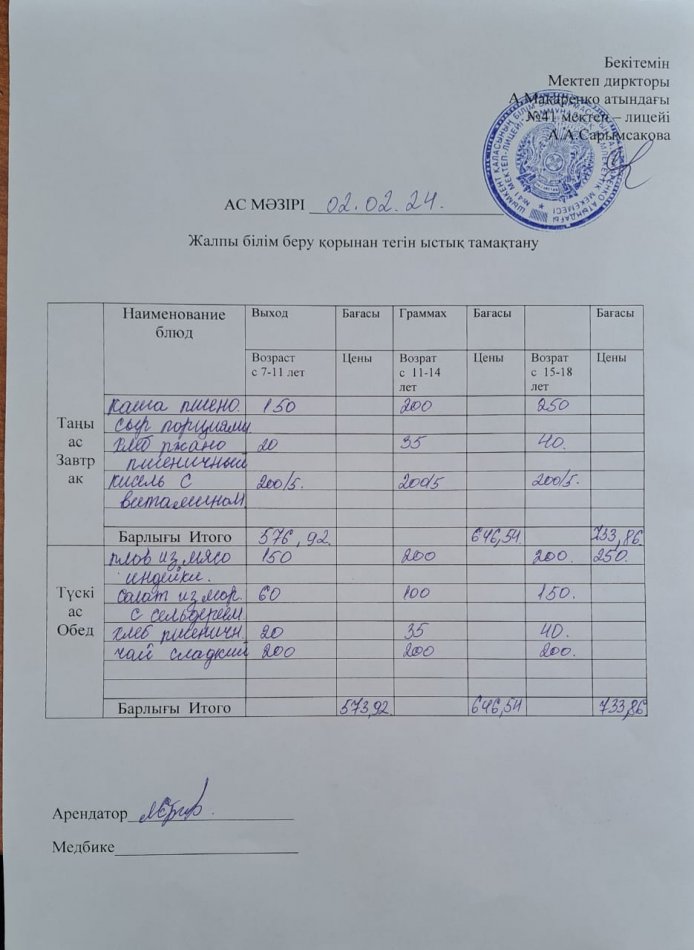 Бекітемін
Мектеп диркторы
А.Макаренко атындағы
№41 мектеп – лицейі
А.А.Сарымсакова
АС МӘЗІРІ 02.02.24.
Жалпы білім беру қорынан тегін ыстық тамақтану
Наименование блюд Выход Бағасы Граммах Бағасы Бағасы
Возраст с 7-11 лет Цены Возрат с 11-14 лет Цены Возрат с 15-18 лет Цены
Таңы ас Завтр ак
каша пшено. 150 200 250
сыр порциями
хлеб ржано 20 35 40.
пшеничный
кисель с 200/5. 200/5 200/5.
витамином
Барлығы Итого 576,92 646,54 733,86
Түскі ас Обед
плов из мясо 150 200 200. 250.
индейки.
салат из мор. 60 100 150.
с сельдереем
хлеб пшеничн. 20 35 40.
чай сладкий 200 200 200.
Барлығы Итого 573,92 646,54 733,86
Арендатор
Медбике